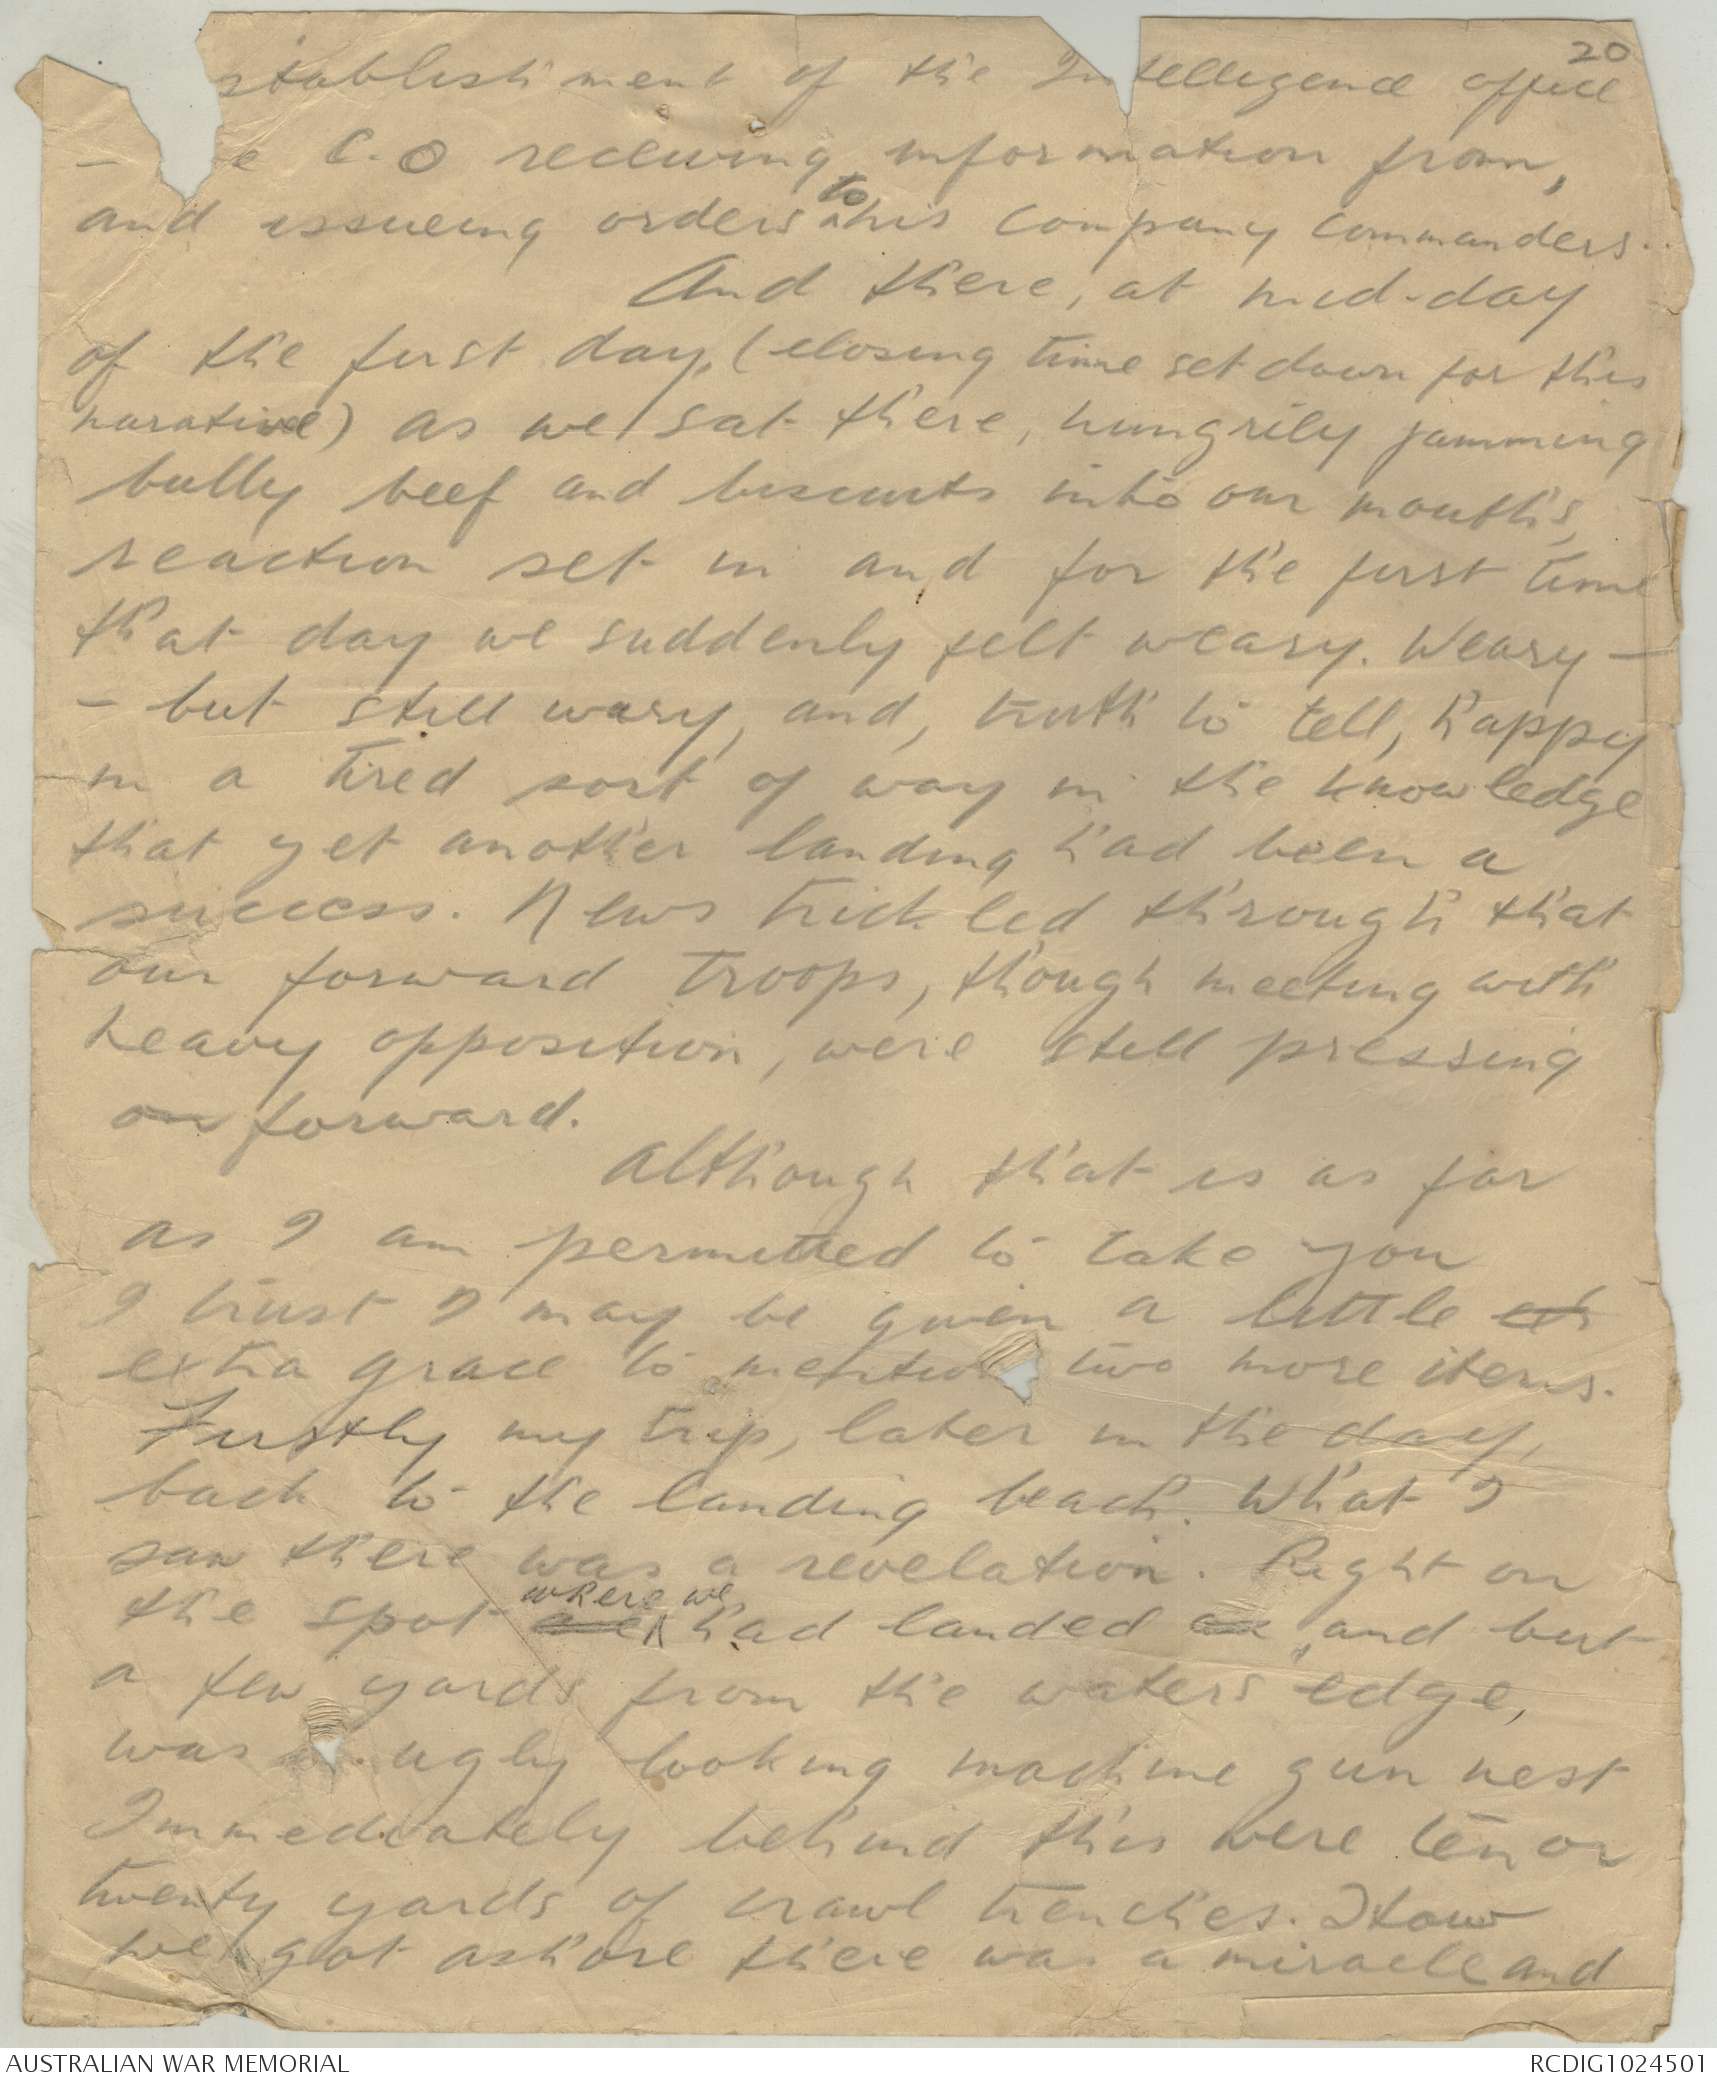 20
stablishment of the Intelligence office
- e C.O receiving information from,
and issueing orders to his company commanders.
And there, at mid-day
of the first day, (closing time set down for this
narative) as we sat there, hungrily jamming
bully beef and biscuits into our mouths,
reaction set in and for the first time
that day we suddenly felt weary. Weary -
- but still wary, and, truth to tell, happy
in a tired sort of way in the knowledge
that yet another landing had been a
success. News trickled through that
our forward troops, though meeting with
heavy opposition, were still pressing
on forward.
Although that is as far
as I am permitted to take you
I trust I may be given a little
extra grace to mention two more items.
Firstly my trip, later in the day,
back to the landing beach. What I
saw there was a revelation. Right on
the spot where we had landed and but
a few yards from the waters edge,
was ugly looking machine gun nest
Immediately behind this were ten or
twenty yards of crawl trenches. How
we got ashore there was a miracle and
AUSTRALIAN WAR MEMORIAL
RCDIG1024501